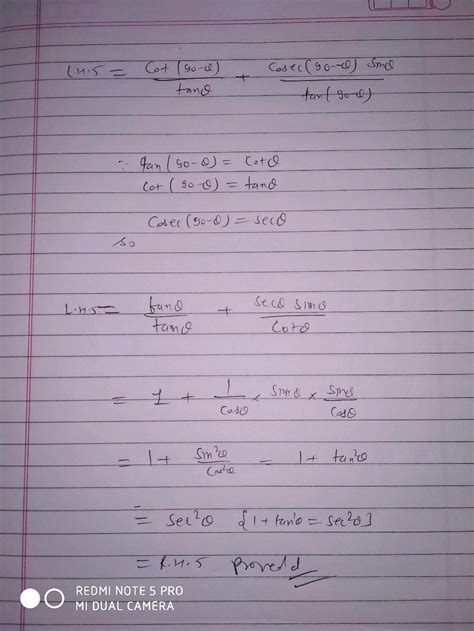 L.H.S = Cot(90-θ)/tanθ + Cosec(90-θ) Sinθ/tan(90-θ)
∵ tan(90-θ) = Cotθ
Cot(90-θ) = tanθ
Cosec(90-θ) = secθ
So
L.H.S = tanθ/tanθ + secθ Sinθ/Cotθ
= 1 + 1/Cosθ × Sinθ × Sinθ/Cosθ
= 1 + Sin²θ/Cos²θ = 1 + tan²θ
= Sec²θ {1 + tan²θ = sec²θ]
= R.H.S Proved
REDMI NOTE 5 PRO
MI DUAL CAMERA